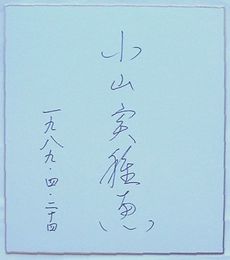 小山実稚恵
一九八九・四・二十四